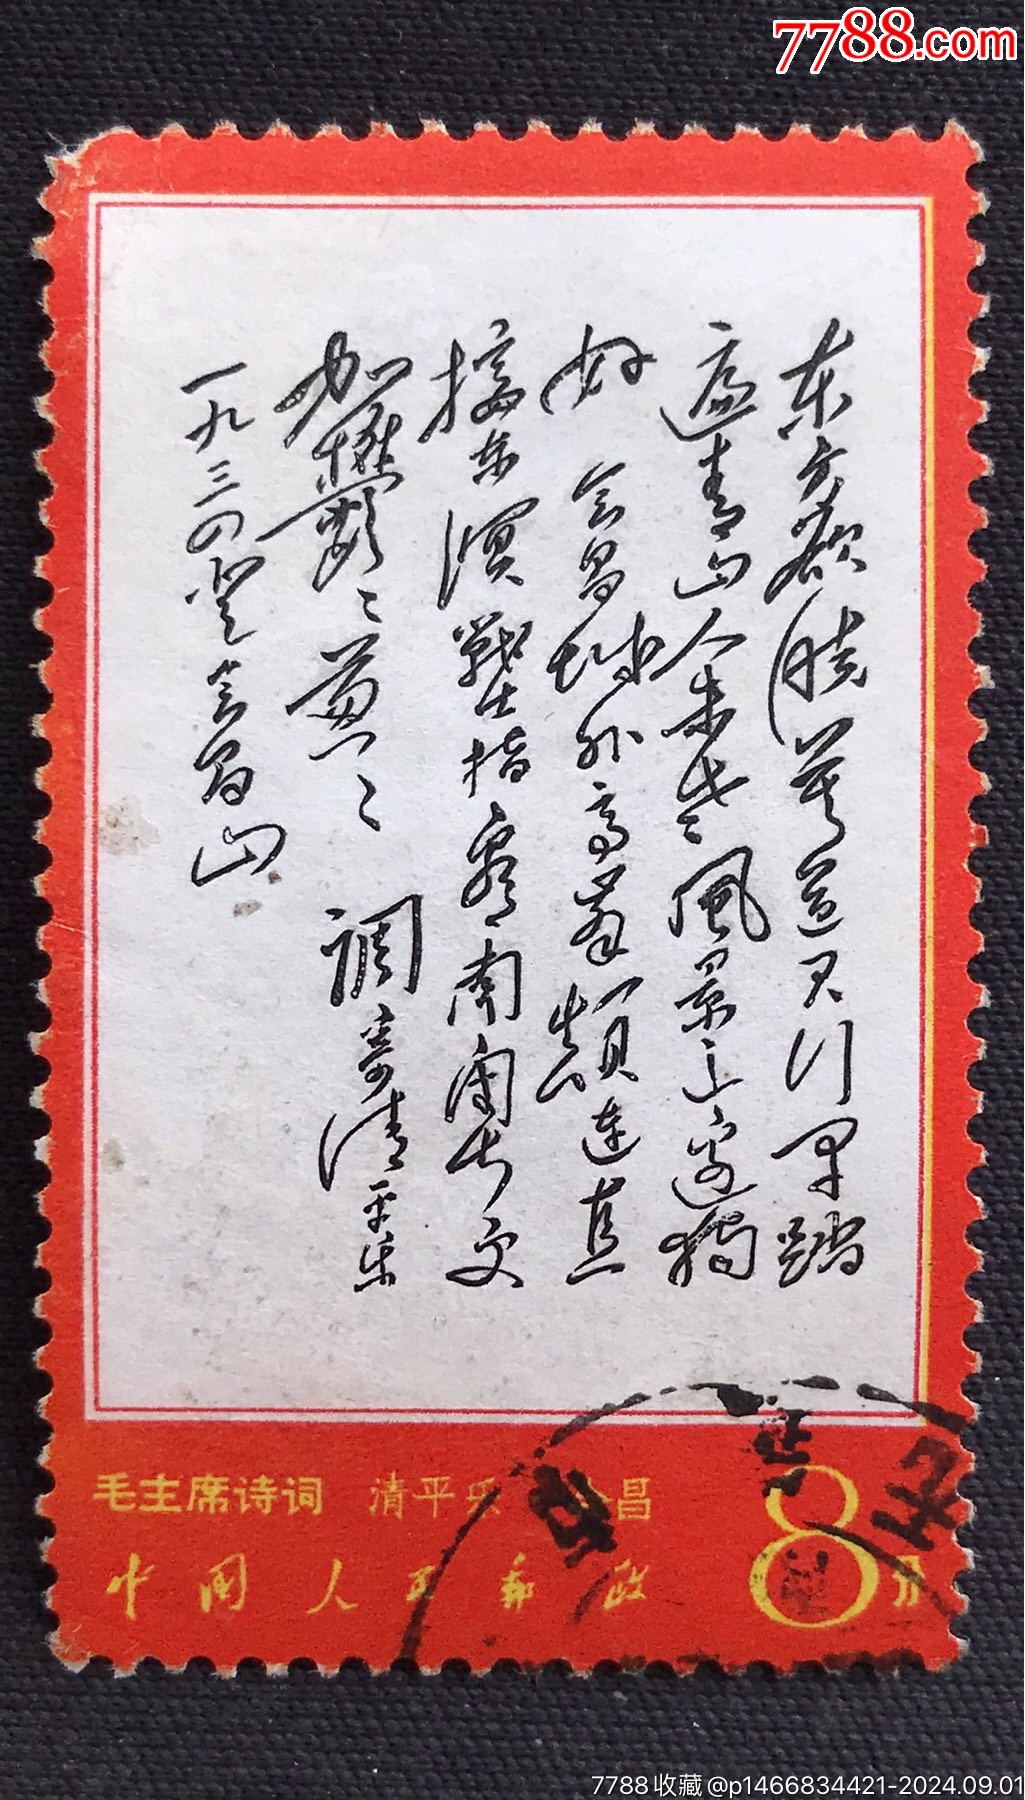 7788.com
东方欲晓莫道君行早踏
遍青山人未老風景这边独
好 会昌城外高峰颠连直
接东溟戰士指看南粤更
加鬱〻葱〻 调寄清平乐
一九三四登会昌山
毛主席诗词 清平乐 会昌
中国人民邮政 8分
7788收藏@p1466834421-2024.09.01